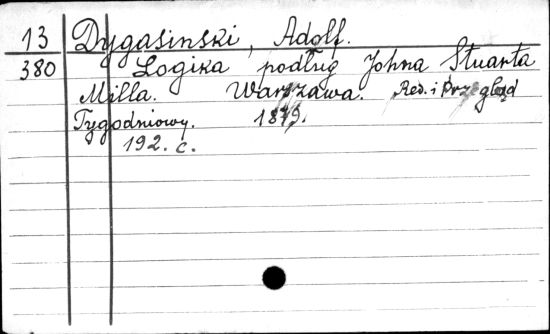 13 Dygasinski, Adolf.
380 Logika podług Johna Stuarta
Milla. Warszawa. Red. i Przegląd
Tygodniowy. 1879.
192. c.